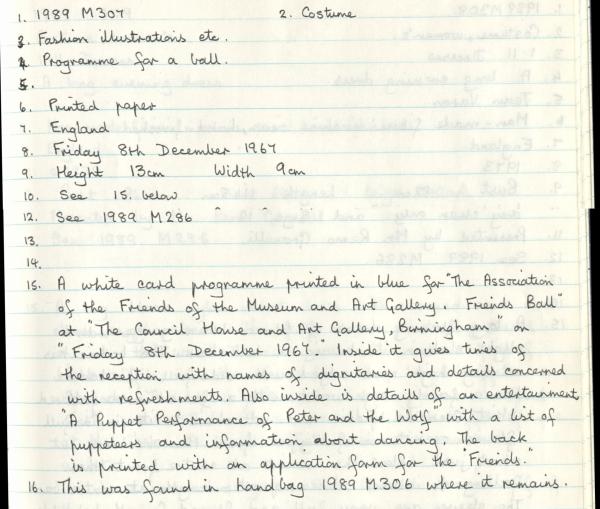 1. 1989 M307 2. Costume
3. Fashion illustrations etc.
4. Programme for a ball.
5.
6. Printed paper
7. England
8. Friday 8th December 1967
9. Height 13cm Width 9cm
10. See 15. below
12. See 1989 M286
13.
14.
15. A white card programme printed in blue for "The Association
of the Friends of the Museum and Art Gallery. Friends Ball"
at "The Council House and Art Gallery, Birmingham" on
"Friday 8th December 1967." Inside it gives times of
the reception with names of dignitaries and details concerned
with refreshments. Also inside is details of an entertainment,
"A Puppet Performance of Peter and the Wolf" with a list of
puppeteers and information about dancing. The back
is printed with an application form for the "Friends."
16. This was found in handbag 1989 M306 where it remains.